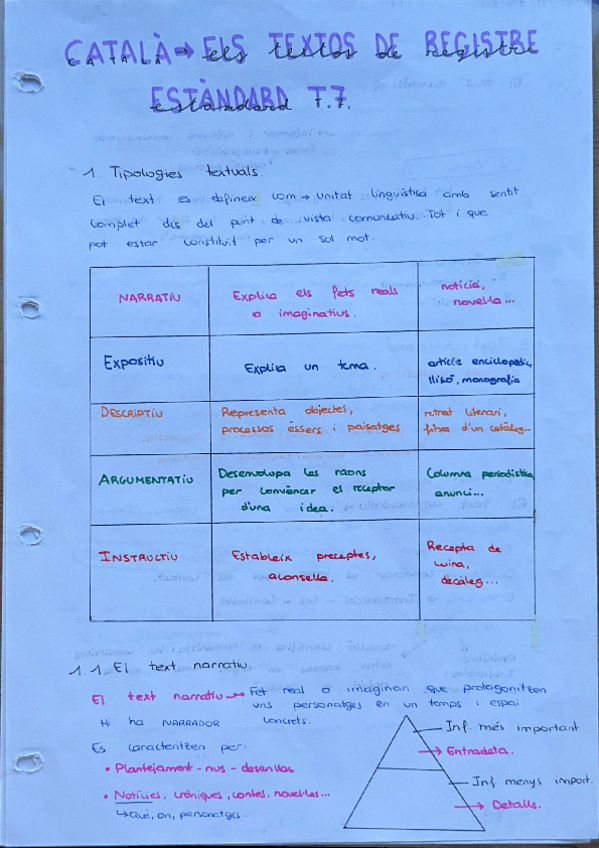 CATALÀ → ELS TEXTOS DE REGISTRE
ESTÀNDARD T.7.
1. Tipologies textuals.
El text es defineix com → unitat lingüística amb sentit
complet dis del punt de vista comunicatiu. Tot i que
pot estar constituït per un sol mot.
NARRATIU
Explica els fets reals
o imaginatius.
notícia,
novel·la...
Expositiu
Explica un tema.
article enciclopèdic,
lliçó, monografia
DESCRIPTIU
Representa objectes,
processos éssers i paisatges
retrat literari,
fitxa d'un catàleg...
ARGUMENTATIU
Desenvolupa les raons
per convèncer el receptor
d'una idea.
Columna periodística,
anunci...
INSTRUCTIU
Estableix preceptes,
aconsella.
Recepta de
cuina,
decàleg...
1.1. El text narratiu.
El text narratiu → Fet real o imaginari que protagonitzen
uns personatges en un temps i espai
Hi ha NARRADOR concrets.
Es caracteritzen per:
• Plantejament - nus - desenllaç
• Notícies, cròniques, contes, novel·les...
↳ Què, on, personatges.
Inf. més important
→ Entradeta.
Inf. menys import.
→ Detalls.